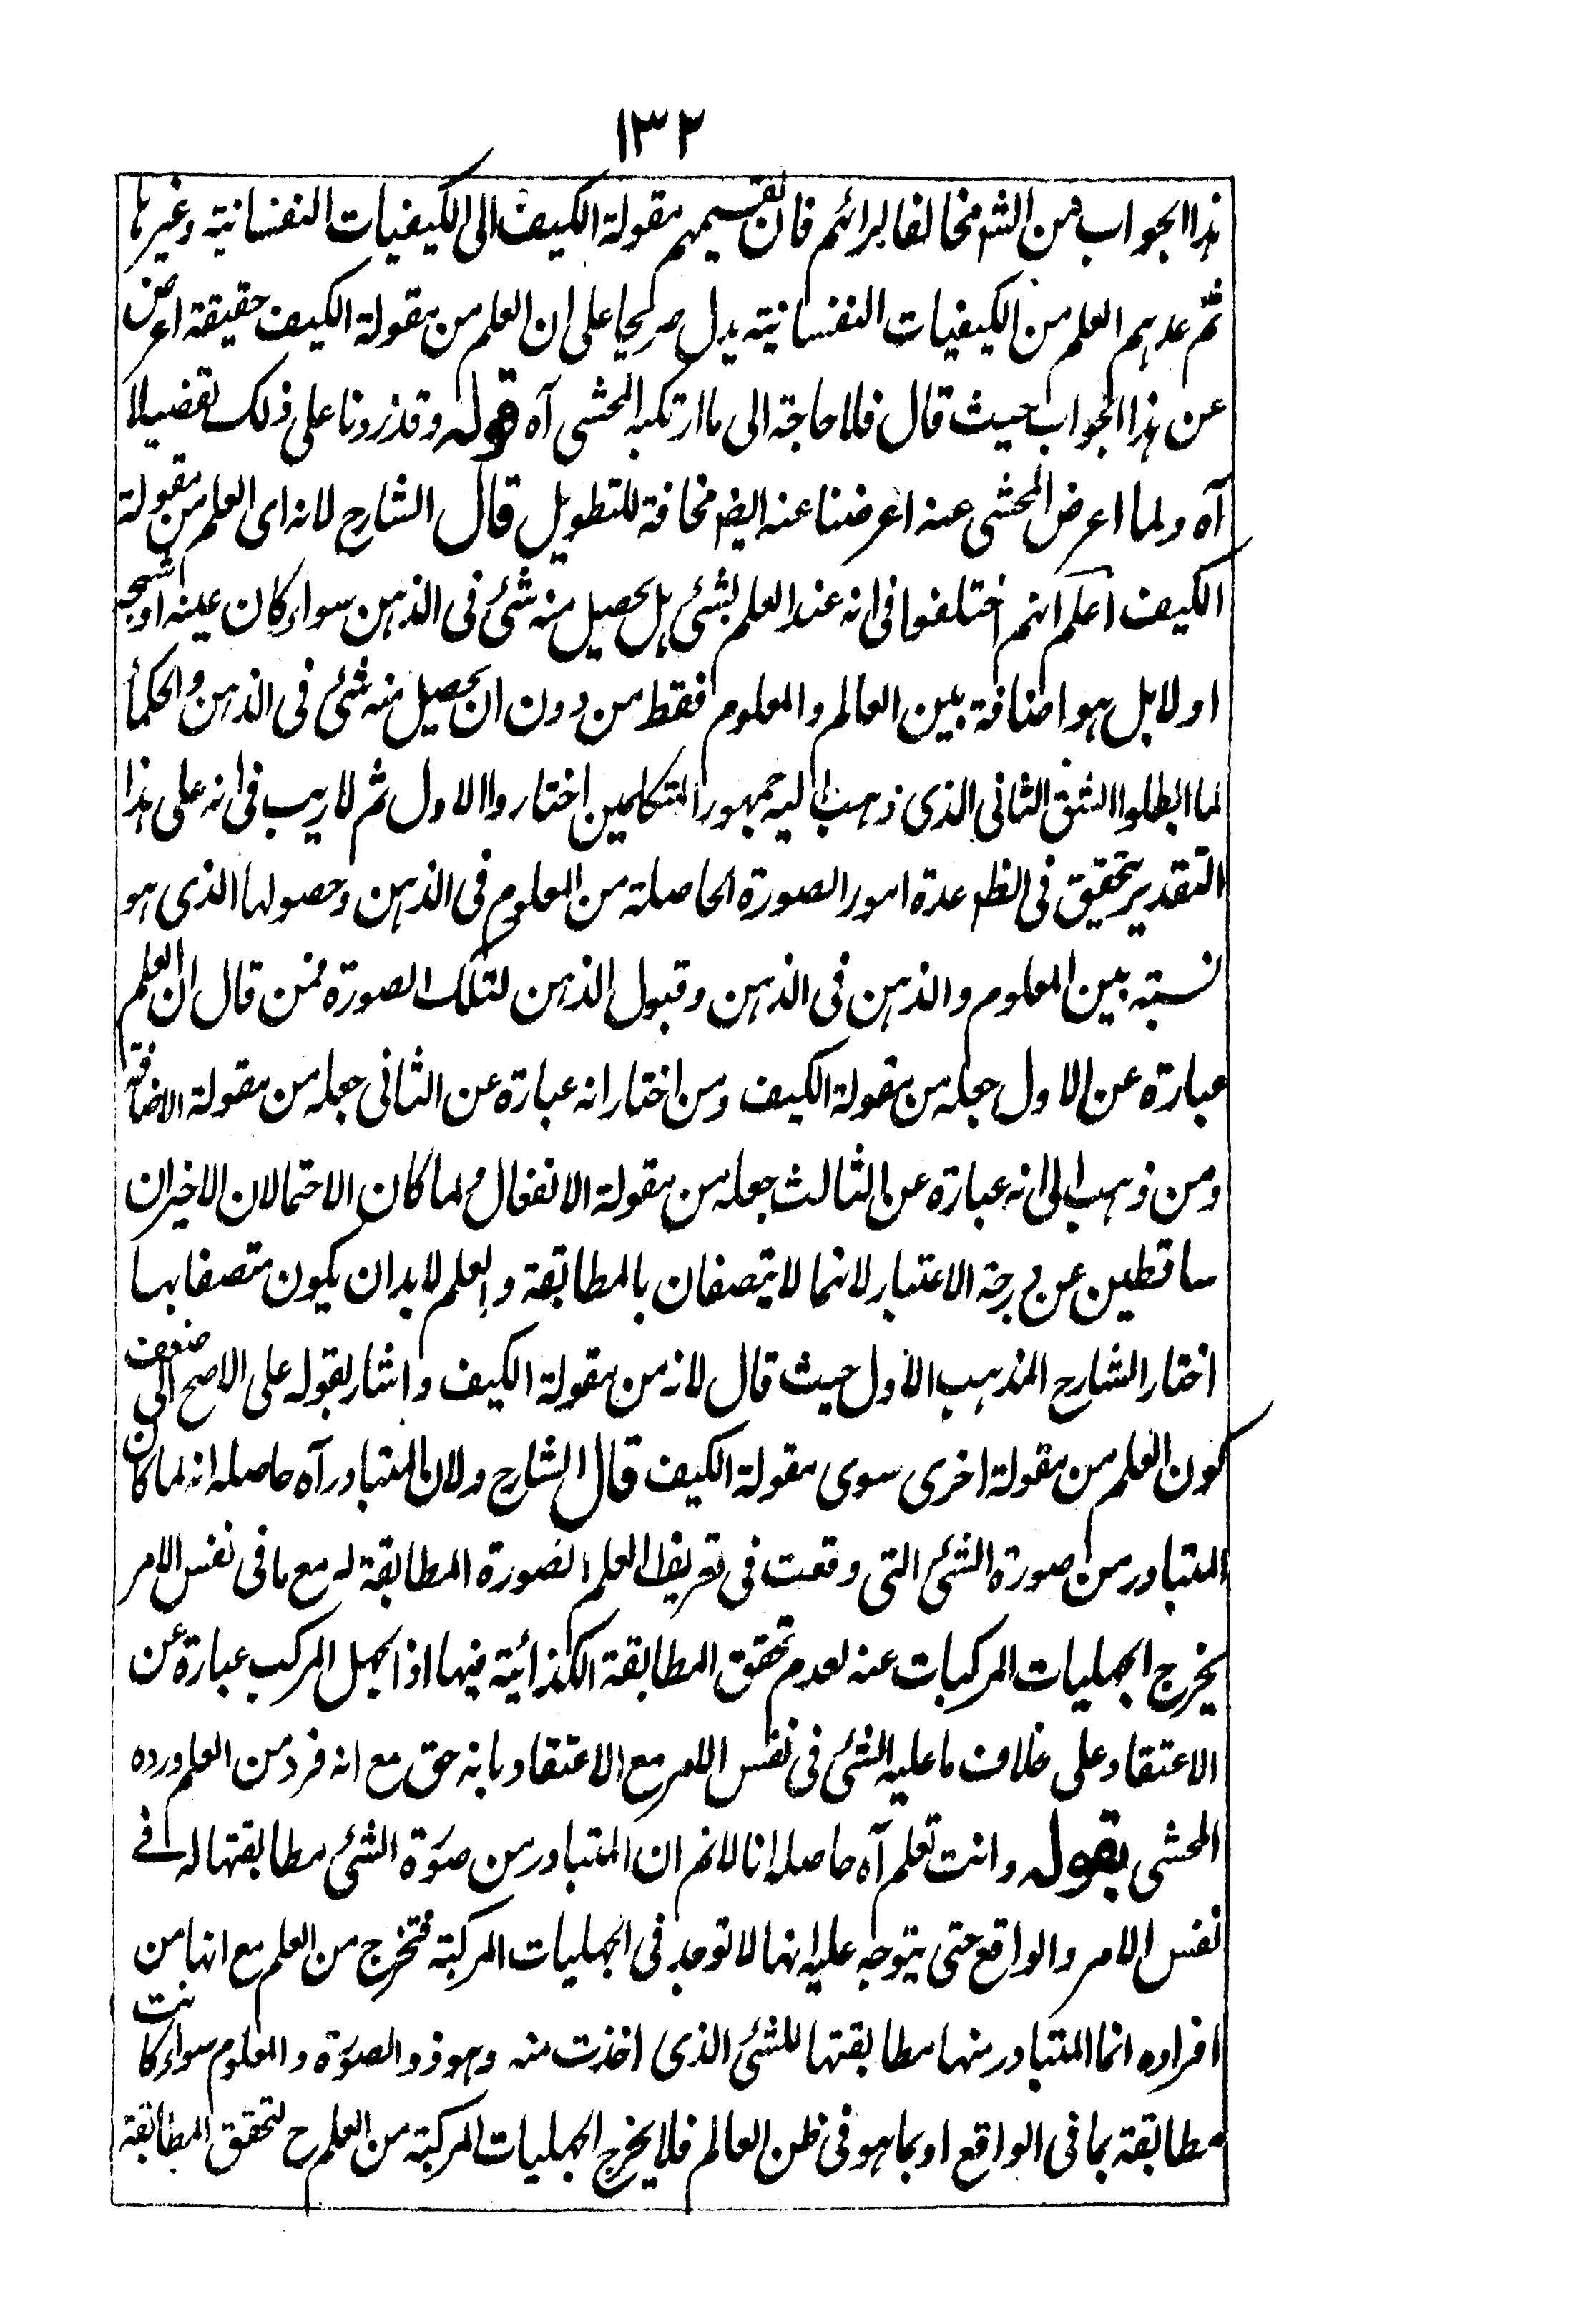 ١٣٢
هذا الجواب من الشہ مخالفا لرائهم فان تقسيمهم مقولة الكيف الى الكيفيات النفسانية وغيرها
ثم عدهم العلم من الكيفيات النفسانية يدل صريحا على ان العلم من مقولة الكيف حقيقة اعرض
عن هذا الجواب حيث قال فلا حاجة الى ما ارتكبه المحشى آه قوله وقد زدنا على ذلك تفضيلا
آه ولما اعرض المحشى عنه اعرضنا عنه ايضہ مخافة للتطويل قال الشارح لانه اى العلم من مقولة
الكيف اعلم انهم اختلفوا فى انه عند العلم بشئ هل يحصل منه شئ فى الذهن سواء كان عينه او شبحه
او لا بل هو اضافة بين العالم والمعلوم فقط من دون ان يحصل منه شئ فى الذهن والحكمأ
لما ابطلوا الشق الثانى الذى ذهب اليه جمهور المتكلمين اختاروا الاول ثم لا ريب فى انه على هذا
التقدير يتحقق فى الظہ عدة امور الصورة الحاصلة من المعلوم فى الذهن وحصولها الذى هو
نسبة بين المعلوم والذهن فى الذهن وقبول الذهن لتلك الصورة فمن قال ان العلم
عبارة عن الاول جعله من مقولة الكيف ومن اختار انه عبارة عن الثانى جعله من مقولة الاضافة
ومن ذهب الى انه عبارة عن الثالث جعله من مقولة الانفعال ولما كان الاحتمالان الاخيران
ساقطين عن درجة الاعتبار لانهما لا يتصفان بالمطابقة والعلم لا بد ان يكون متصفا بها
اختار الشارح المذهب الاول حيث قال لانه من مقولة الكيف واشار بقوله على الاصح الى ضعف
كون العلم من مقولة اخرى سوى مقولة الكيف قال الشارح ولان المتبادر آه حاصله انه لما كان
المتبادر من صورة الشئ التى وقعت فى تعريف العلم الصورة المطابقة له مع ما فى نفس الامر
يخرج الجهليات المركبات عنه لعدم تحقق المطابقة الكذائية فيها اذ الجهل المركب عبارة عن
الاعتقاد على خلاف ما عليه الشئ فى نفس الامر مع الاعتقاد بانه حق مع انه فرد من العلم ورده
المحشى بقوله وانت تعلم آه حاصله انا لا نم ان المتبادر من صورة الشئ مطابقتها له فى
نفس الامر والواقع حتى يتوجه عليه انها لا توجد فى الجهليات المركبة فتخرج من العلم مع انها من
افراده انما المتبادر منها مطابقتها للشئ الذى اخذت منه وهو ذو الصورة والمعلوم سواء كانت
مطابقة بما فى الواقع او بما هو فى ظن العالم فلا يخرج الجهليات المركبة من العلم ح لتحقق المطابقة